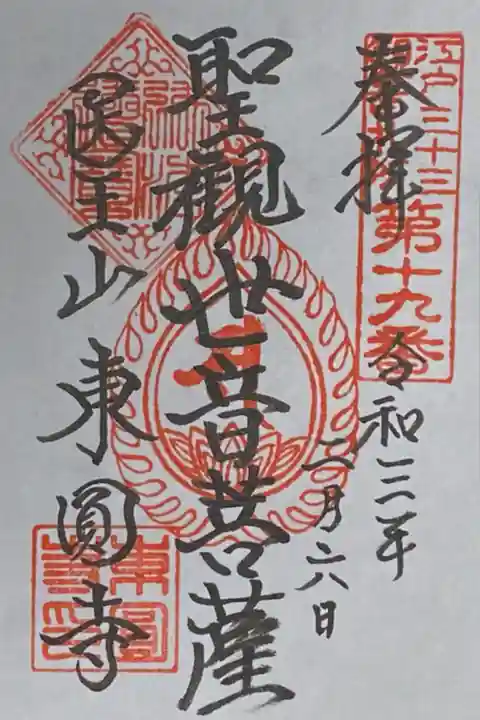 奉拝
江戸三十三
第十九番
令和三年
二月六日
聖觀世音菩薩
医王山東圓寺